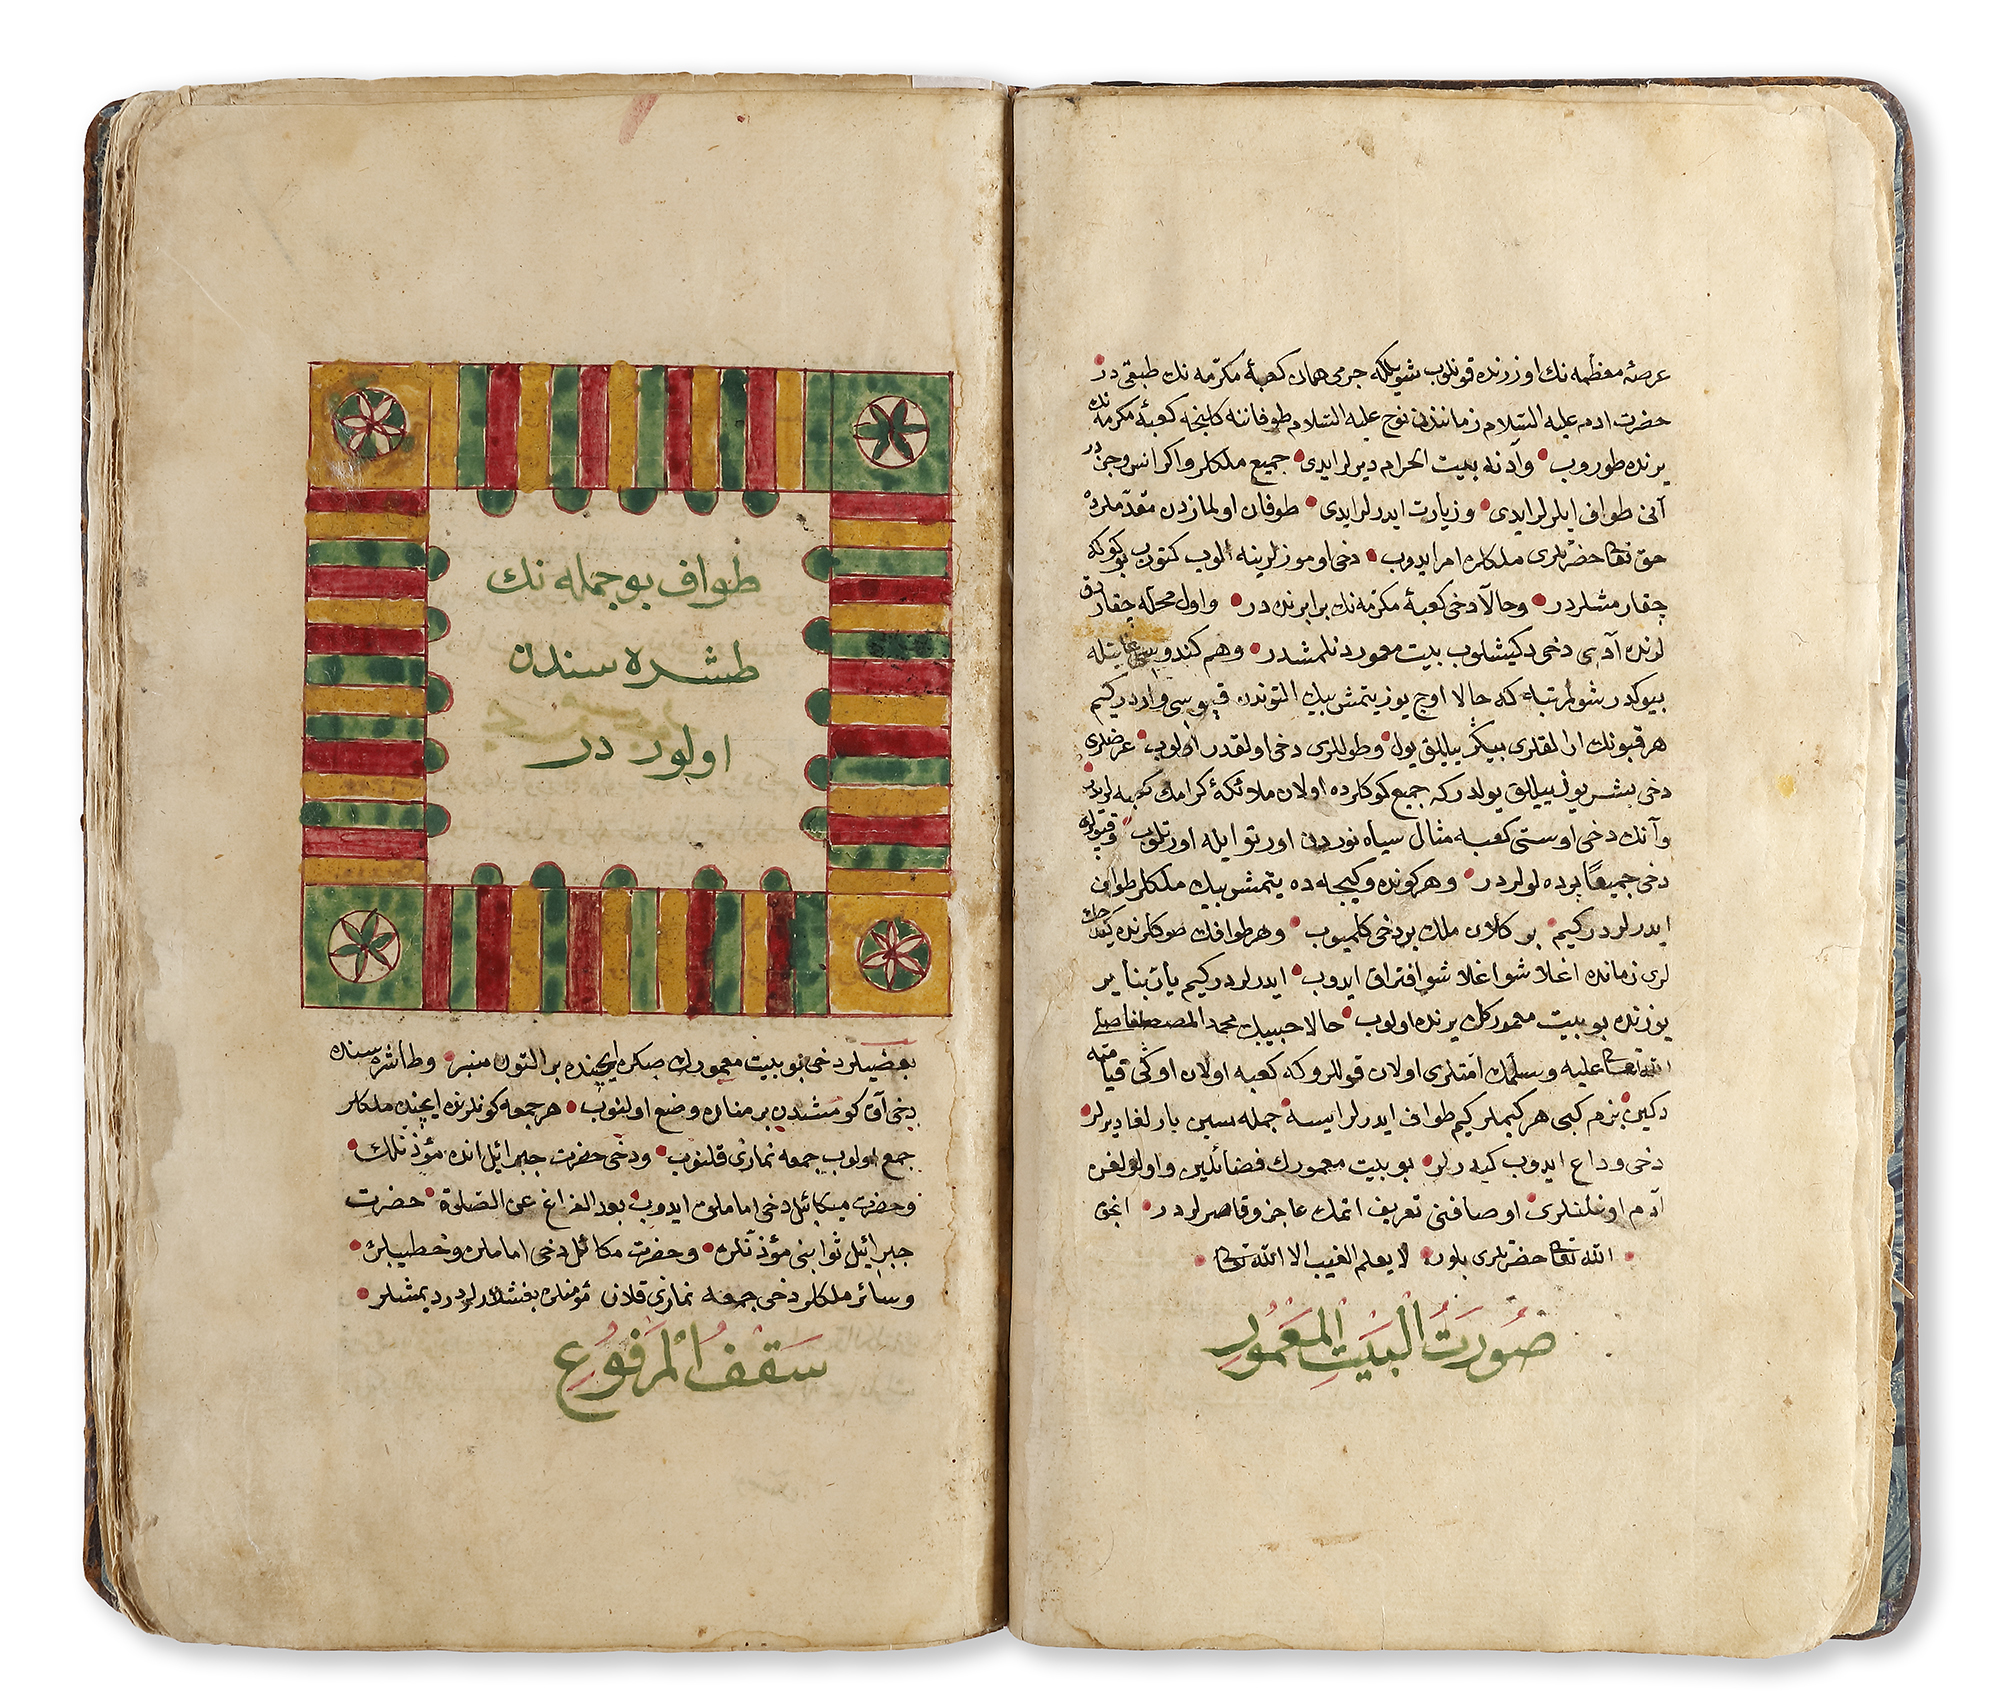 عرصهٔ معظمه نك اوزرنده قونلوب شويلكه جرمى همان كعبهٔ مكرّمه نك طبقى در
حضرت ادم عليه السّلام زماننندن نوح عليه السّلام طوفاننه كلنجه كعبهٔ مكرّمه نك
يرنده طوروب • وآدنه بيت الحرام ديرلر ايدى • جميع ملكلر واكر انس وجن در
آنى طواف ايلرلر ايدى • وزيارت ايدرلر ايدى • طوفان اولمازدن مقدّملره
حق تعا حضرتلرى ملكلره امر ايدوب • دخى اوموزلرينه الوب كتوروب بو كوكه
چقارمشلردر • وحالآ دخى كعبهٔ مكرّمه نك برابرنده در • واول محله چقاردق
لرنده آدى دخى دكيشلوب بيت معمور دنلمشدر • وهم كندوسى غايتله
بيوكدر شول مرتبه كه حالا اوچ يوز يتمش بيك التوندن قپوسى واردر كيم
هر قپونك ارالقلرى بيكر ييللق يول • وطوللرى دخى اولقدر اطلوب • عرضلرى
دخى بشر يوز ييللق يولدر كه جميع كوكلرده اولان ملائكهٔ كرامك كعبه لريدر •
وآنك دخى اوستى كعبه مثال سياه نوردن اورتو ايله اورتلوب • وقپولرى
دخى جميعًا پرده لولردر • وهر كونده وكيجه ده يتمش بيك ملكلر طواف
ايدرلر در كيم • بر كلان ملك بر دخى كلميوب • وهر طوافك صوكلرنده كيدجك
لرى زمانده اغلاشو اغلاشو افتراق ايدوب • ايدرلردر كيم ياربنا ير
يوزنده بو بيت معمورك يرنده اولوب • حالا حبيبك محمد المصطفا صلى
الله تعا عليه وسلمك امّتلرى اولان قوللروكه كعبه اولان اوكى قيامته
دكين • بزم كبى هر كيملر كيم طواف ايدرلر ايسه • جمله سين يارلغا ديرلر •
دخى وداع ايدوب كيدرلر • بو بيت معمورك فضائلين واولولغن
آدم اوغلنلرى • اوصافنى تعريف اتمك عاجز وقاصرلردر • انجق
• الله تعا حضرتلرى بلور • لا يعلم الغيب الا الله تعا •
صُورَتُ الْبَيْتِ الْمَعْمُورِ
طواف بو جمله نك
طشره سندن
اولور در
بعضيلر دخى بو بيت معمورك صكره ايچنده بر التون منبر • وطاشره سنده
دخى آق كومشدن بر مناره وضع اولنوب • هر جمعه كونلرنده ايچنده ملكلر
جمع اولوب جمعه نمازى قلنوب • ودخى حضرت جبرائيل انده مؤذنلك •
وحضرت ميكائيل دخى اماملق ايدوب بعد الفراغ عن الصّلوة • حضرت
جبرائيل ثوابنى مؤذنلره • وحضرت مكائل دخى اماملره وخطيبلره •
وسائر ملكلر دخى جمعه نمازى قلان مؤمنلره بغشلارلردر ديمشلر •
سَقْفُ الْمَرْفُوعِ